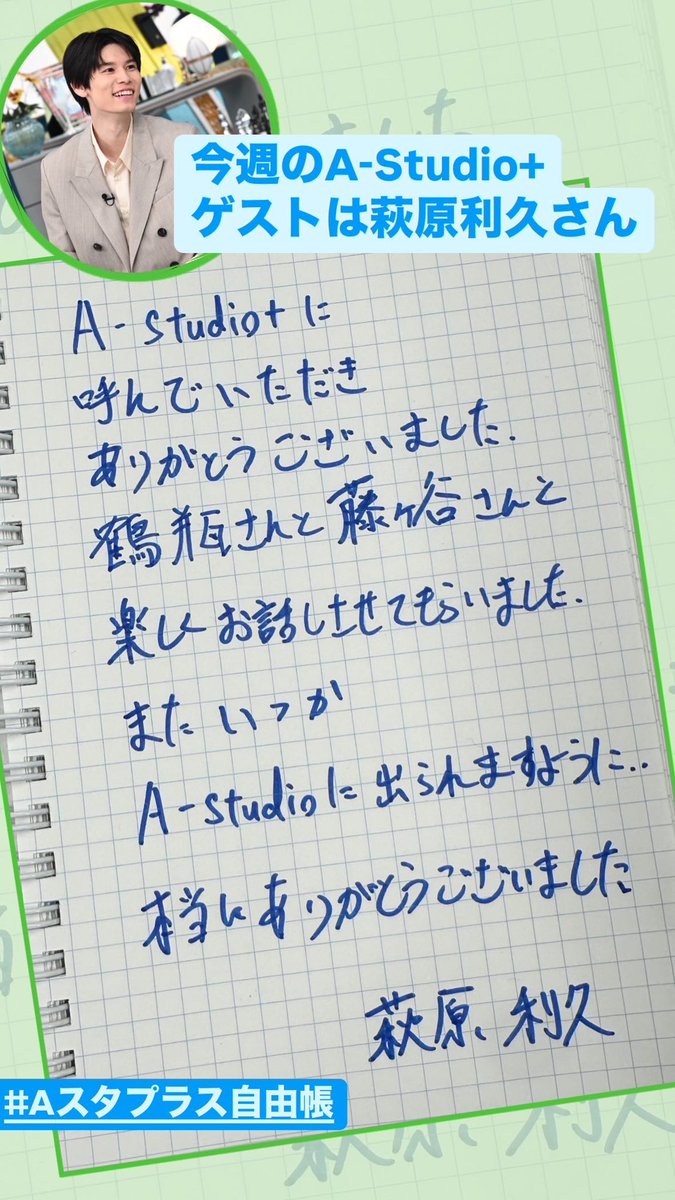 今週のA-Studio+
ゲストは萩原利久さん
A-studio+に
呼んでいただき
ありがとうございました.
鶴瓶さんと藤ヶ谷さんと
楽しくお話しさせてもらいました.
またいつか
A-studioに出られますように..
本当にありがとうございました
萩原利久
#Aスタプラス自由帳